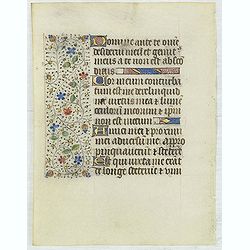 Domine ante te omne
desiderium meum et gemitus
meus a te non est abscon
ditus
Cor meum conturba
tum est me dereliquit
me virtus mea et lumen
oculorum meorum et ipsum
non est mecum
Amici mei et proximi
mei adversum me appro
pinquaverunt et steterunt
Et qui iuxta me erat
de longe steterunt et vim